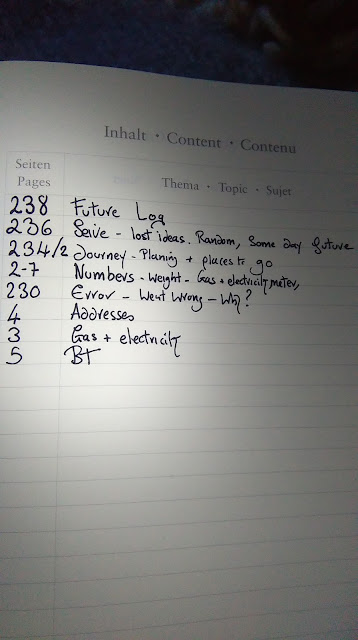 Inhalt · Content · Contenu
Seiten
Pages
Thema · Topic · Sujet
238 Future Log
236 Seive - lost ideas. Random, Some day future
234/2 Journey - Planing + places to go
2-7 Numbers - Weight - Gas + electricity meter,
230 Error - Went Wrong - Why?
4 Addresses
3 Gas + electricity
5 BT